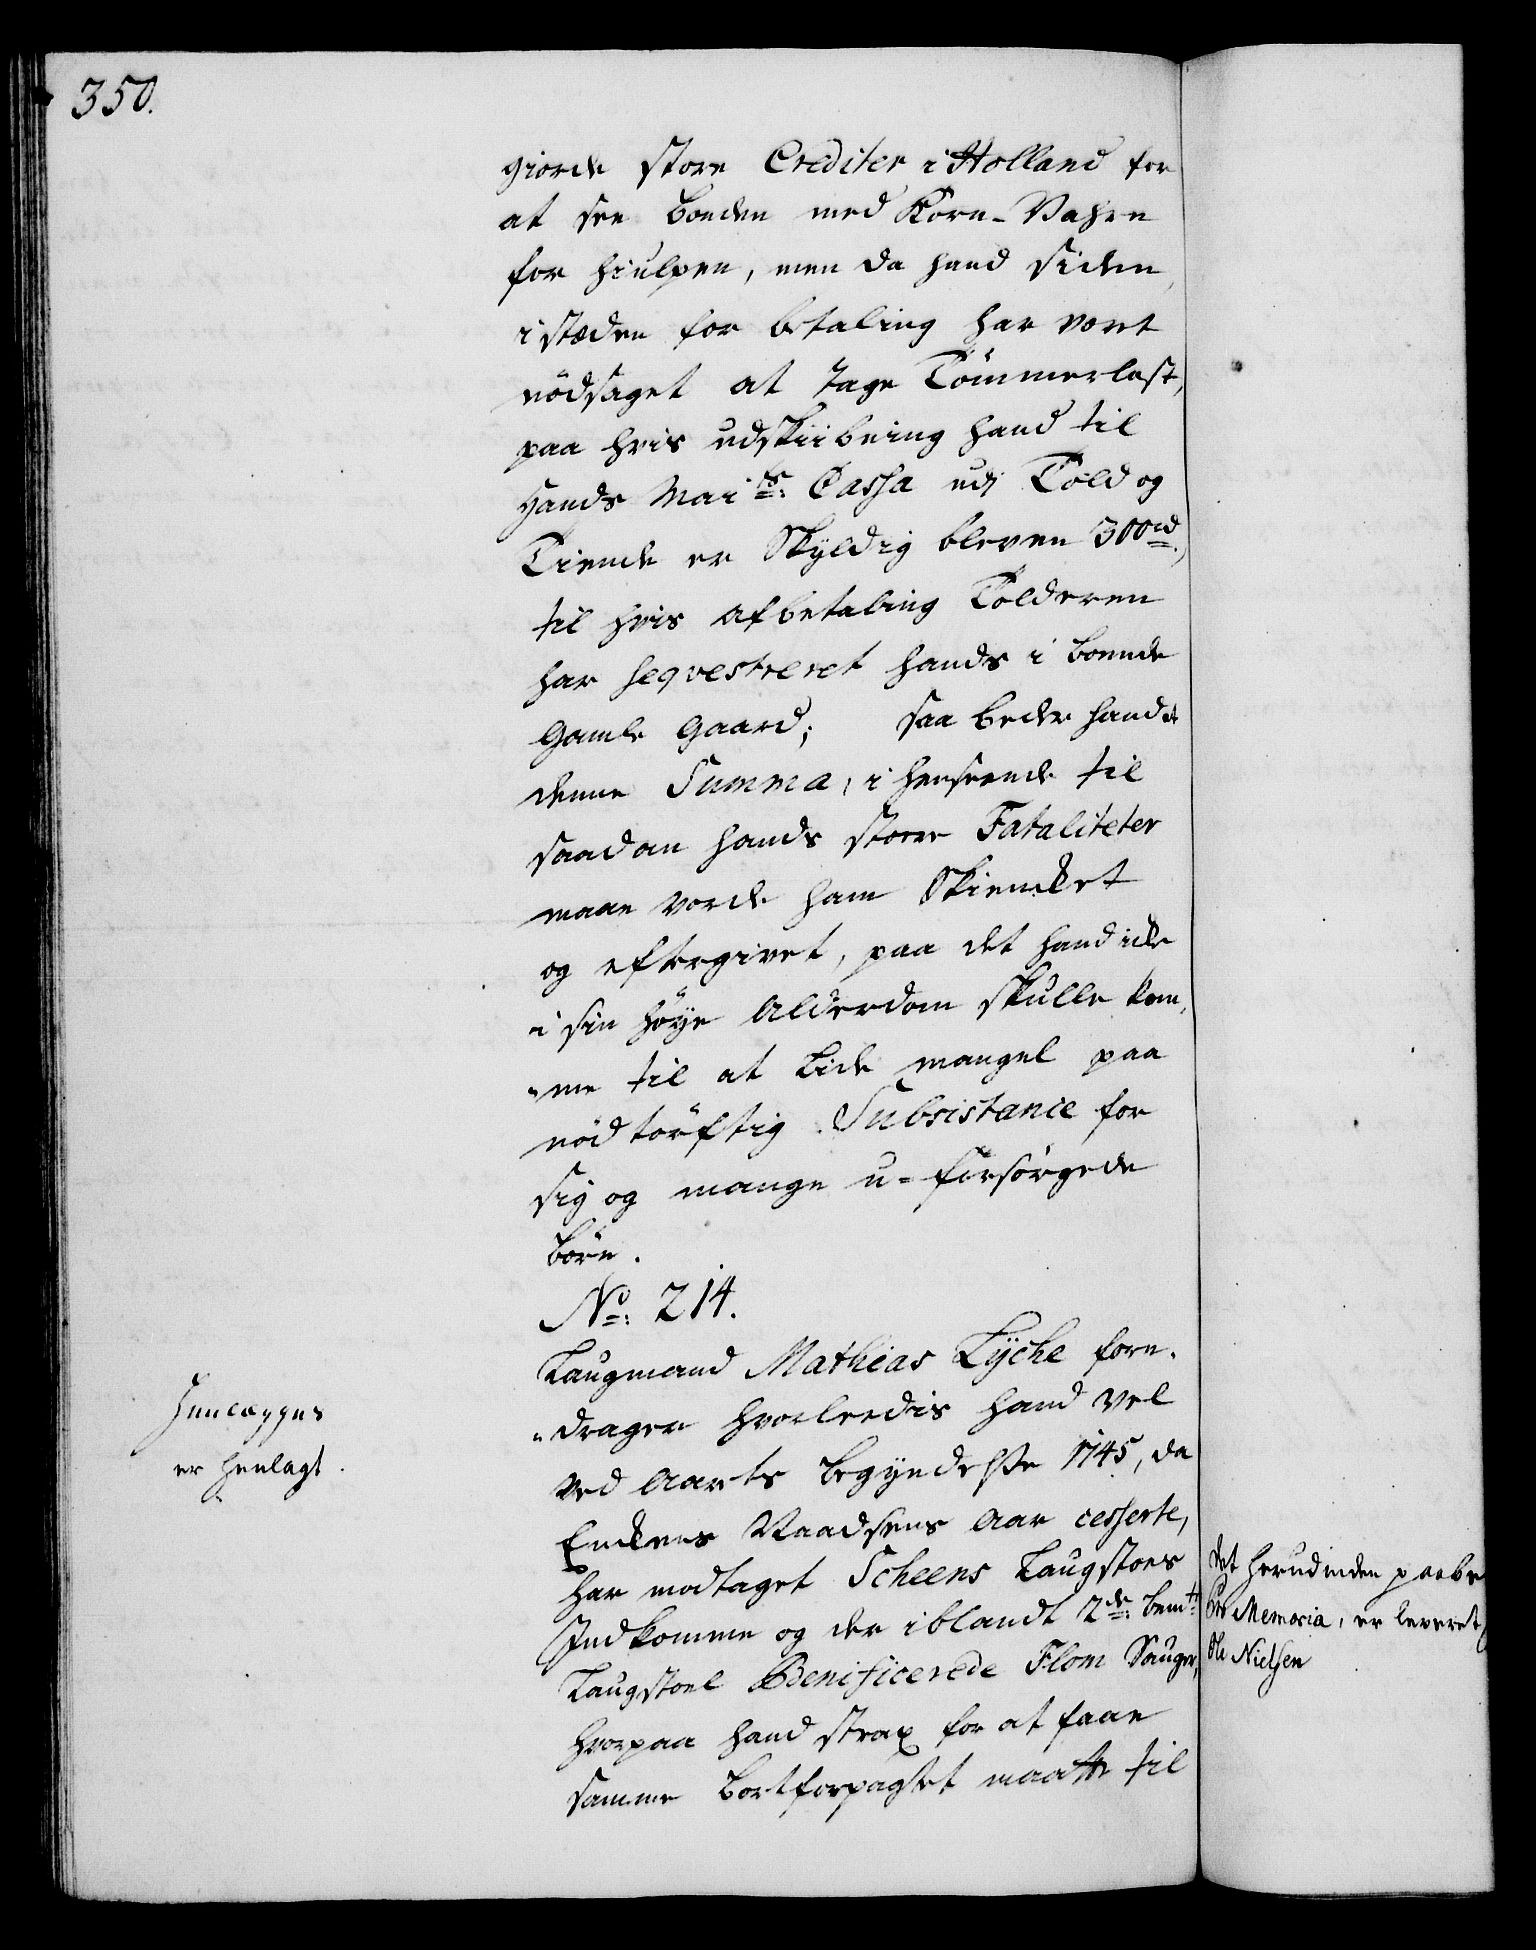 350.
giorde store Crediter i Holland for
at see bonden med Korn-Vahre
for hiulpen, men da hand siden,
i stæden for betaling har vært
nödsaget at tage Tömmerlast,
paa hvis udskiibning hand til
Hands Mai^ts: Cassa udj Told og
Tiende er Skyldig bleven 300 rd.,
til hvis afbetaling Tolderen
har seqvestreret hands i boende
gamle gaard; saa beder hand at
denne Summa, i henseende til
saadan hands store Fataliteter
maae vorde ham Skiencket
og eftergivet, paa det hand icke
i sin høye Alderdom skulle kom,
"me til at Lide mangel paa
nödtörftig Subsistance for
sig og mange u-forsörgede
börn.
No: 214.
Laugmand Mathias Lÿche fore-
"drager hvorleedis hand vel
ved Aarets begyndelse 1745, da
Enckens Naadsens Aar cesserte,
har modtaget Scheens Laugstoels
Indkomme og der iblandt 2de: bemte
Laugstoel Benificerede Flom Sauger,
hvorpaa hand strax for at faae
samme bortforpagtet maatte til
Henlægges
er henlagt.
det herudinden paabe
Memoria, er leveret
Ole Nielsen